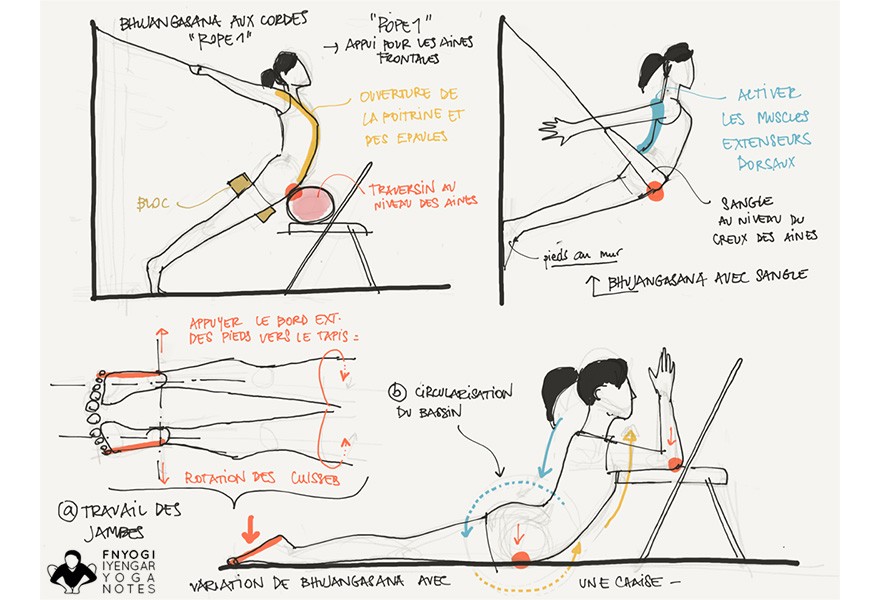 BHUJANGASANA AUX CORDES
"ROPE 1"
"ROPE 1"
→ APPUI POUR LES AINES
FRONTALES
OUVERTURE DE
LA POITRINE ET
DES EPAULES
BLOC
TRAVERSIN AU
NIVEAU DES AINES
ACTIVER
LES MUSCLES
EXTENSEURS
DORSAUX
SANGLE
AU NIVEAU DU
CREUX DES AINES
pieds au mur
BHUJANGASANA AVEC SANGLE
APPUYER LE BORD EXT.
DES PIEDS VERS LE TAPIS =
ROTATION DES CUISSES
a TRAVAIL DES
JAMBES
b CIRCULARISATION
DU BASSIN
FNYOGI
IYENGAR
YOGA
NOTES
VARIATION DE BHUJANGASANA AVEC UNE CHAISE -